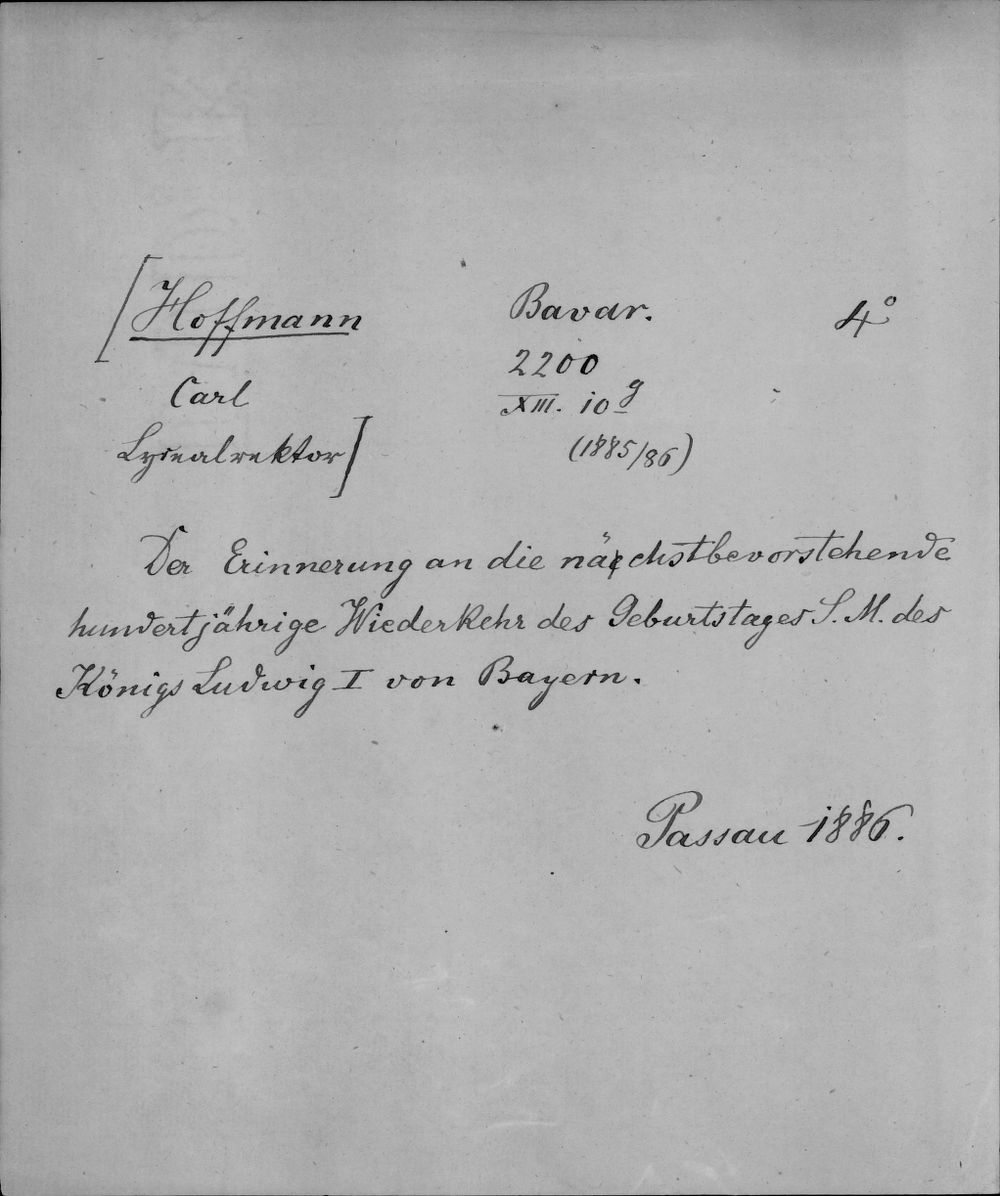 [Hoffmann
Carl
Lycealrektor]
Bavar.
2200
XIII. 10 g
(1885/86)
4°
Der Erinnerung an die nächstbevorstehende
hundertjährige Wiederkehr des Geburtstages S. M. des
Königs Ludwig I von Bayern.
Passau 1886.